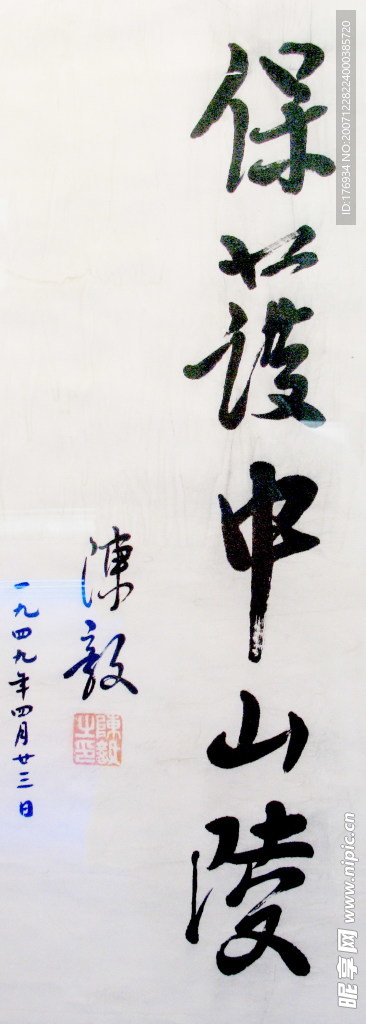 保護中山陵
陳毅
一九四九年四月廿三日
陳毅之印
ID:176934 NO:20071228224000385720
昵享网 www.nipic.cn